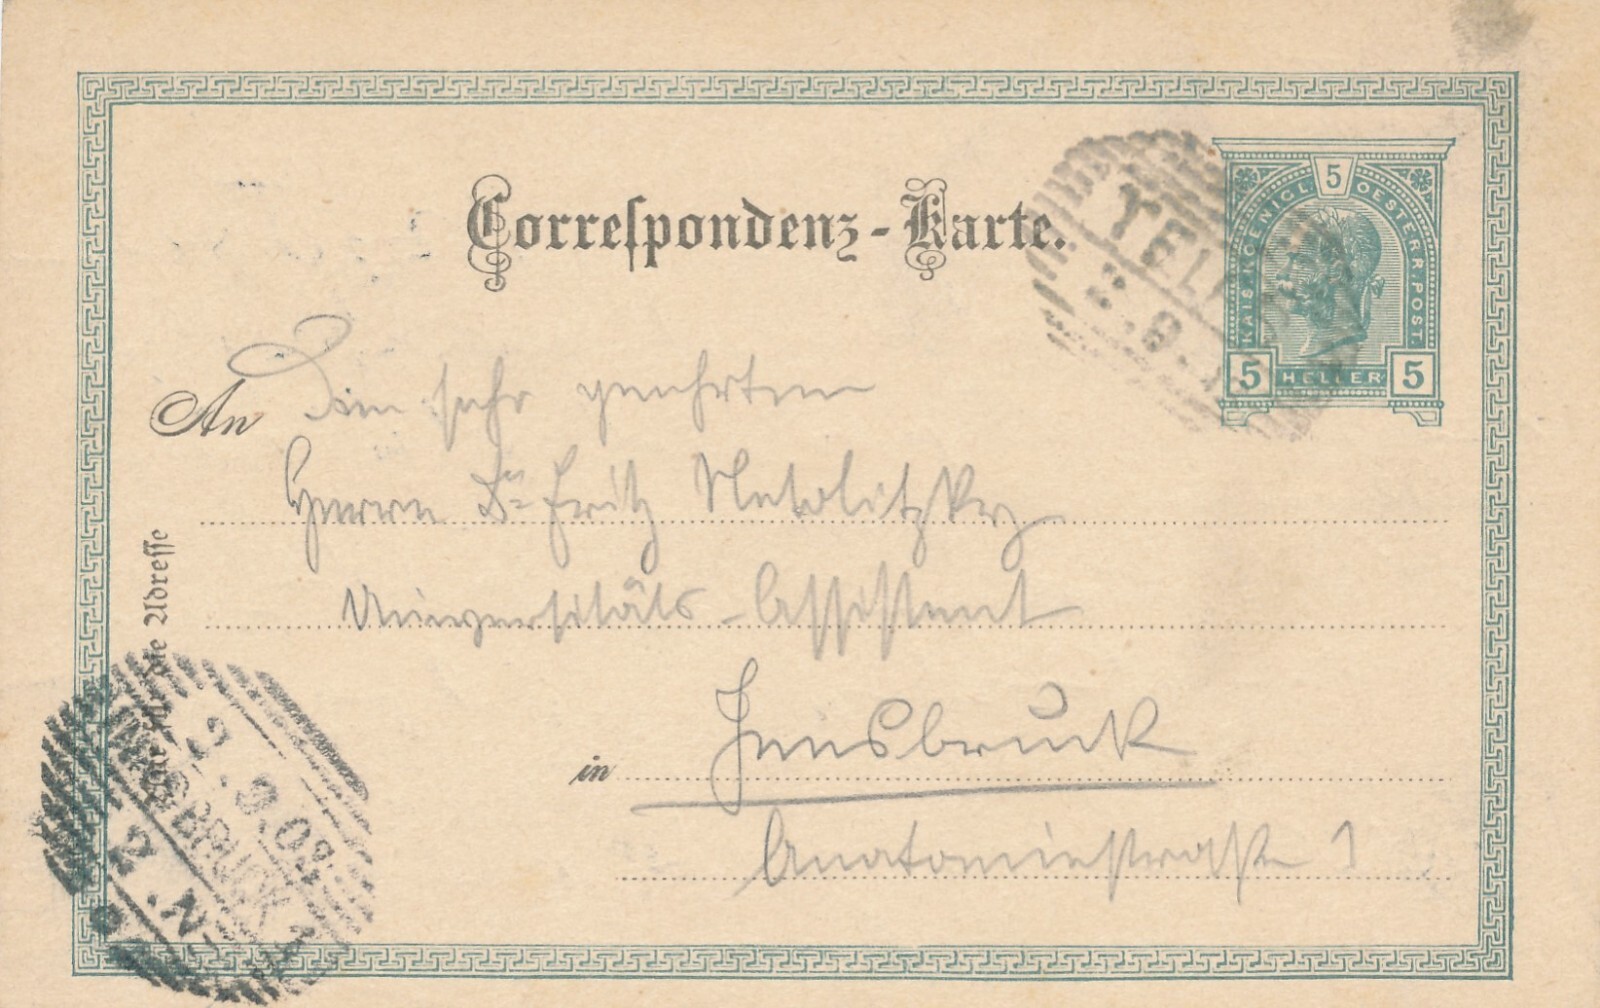 Correspondenz-Karte.
5
KAIS. KOENIGL. OESTERR. POST
5 HELLER 5
TELF
An
sehr geehrten
Herrn Dr. Fritz Netolitzky
Universitäts-Assistent
in Innsbruck
Anatomiestraße 1
Nur für die Adresse
INNSBRUCK 1
2.9.09
2.N